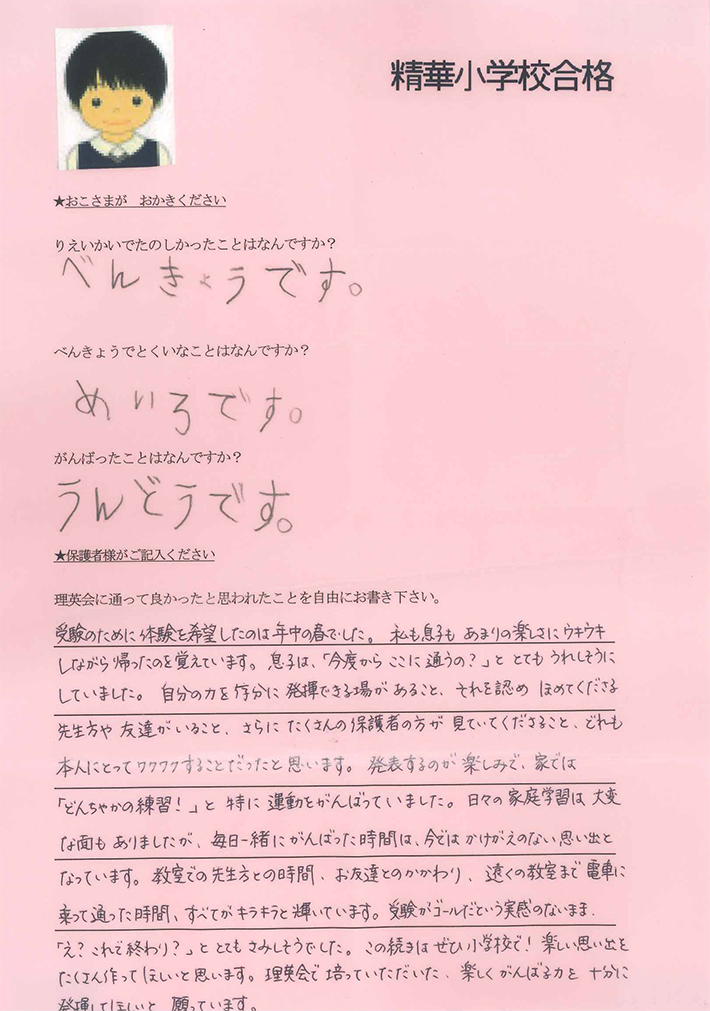 精華小学校合格
★おこさまが　おかきください
りえいかいでたのしかったことはなんですか？
べんきょうです。
べんきょうでとくいなことはなんですか？
めいろです。
がんばったことはなんですか？
うんどうです。
★保護者様がご記入ください
理英会に通って良かったと思われたことを自由にお書き下さい。
受験のために体験を希望したのは年中の春でした。私も息子もあまりの楽しさにウキウキ
しながら帰ったのを覚えています。息子は、「今度からここに通うの？」ととてもうれしそうに
していました。自分の力を存分に発揮できる場があること、それを認めほめてくださる
先生方や友達がいること、さらにたくさんの保護者の方が見ていてくださること、どれも
本人にとってワクワクすることだったと思います。発表するのが楽しみで、家では
「どんちゃかの練習！」と特に運動をがんばっていました。日々の家庭学習は大変
な面もありましたが、毎日一緒にがんばった時間は、今ではかけがえのない思い出と
なっています。教室での先生方との時間、お友達とのかかわり、遠くの教室まで電車に
乗って通った時間、すべてがキラキラと輝いています。受験がゴールだという実感のないまま、
「え？これで終わり？」ととてもさみしそうでした。この続きはぜひ小学校で！楽しい思い出を
たくさん作ってほしいと思います。理英会で培っていただいた、楽しくがんばる力を十分に
発揮してほしいと願っています。